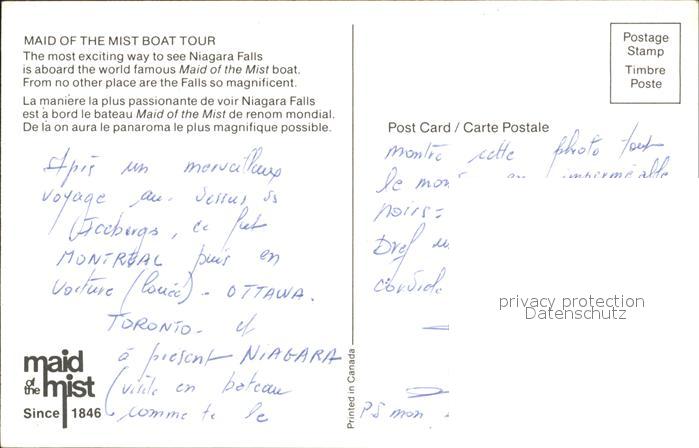 MAID OF THE MIST BOAT TOUR
The most exciting way to see Niagara Falls
is aboard the world famous Maid of the Mist boat.
From no other place are the Falls so magnificent.
La manière la plus passionante de voir Niagara Falls
est à bord le bateau Maid of the Mist de renom mondial.
De là on aura le panaroma le plus magnifique possible.
Après un merveilleux
voyage au dessus ds
Icebergs, ce fut
MONTREAL puis en
voiture (louée) - OTTAWA.
TORONTO - et
à présent NIAGARA
(visite en bateau
comme te le
maid
of the mist
Since 1846
Printed in Canada
Postage
Stamp
Timbre
Poste
Post Card / Carte Postale
montre cette photo tout
le imperméable
noirs =
Bref
PS mon
privacy protection
Datenschutz